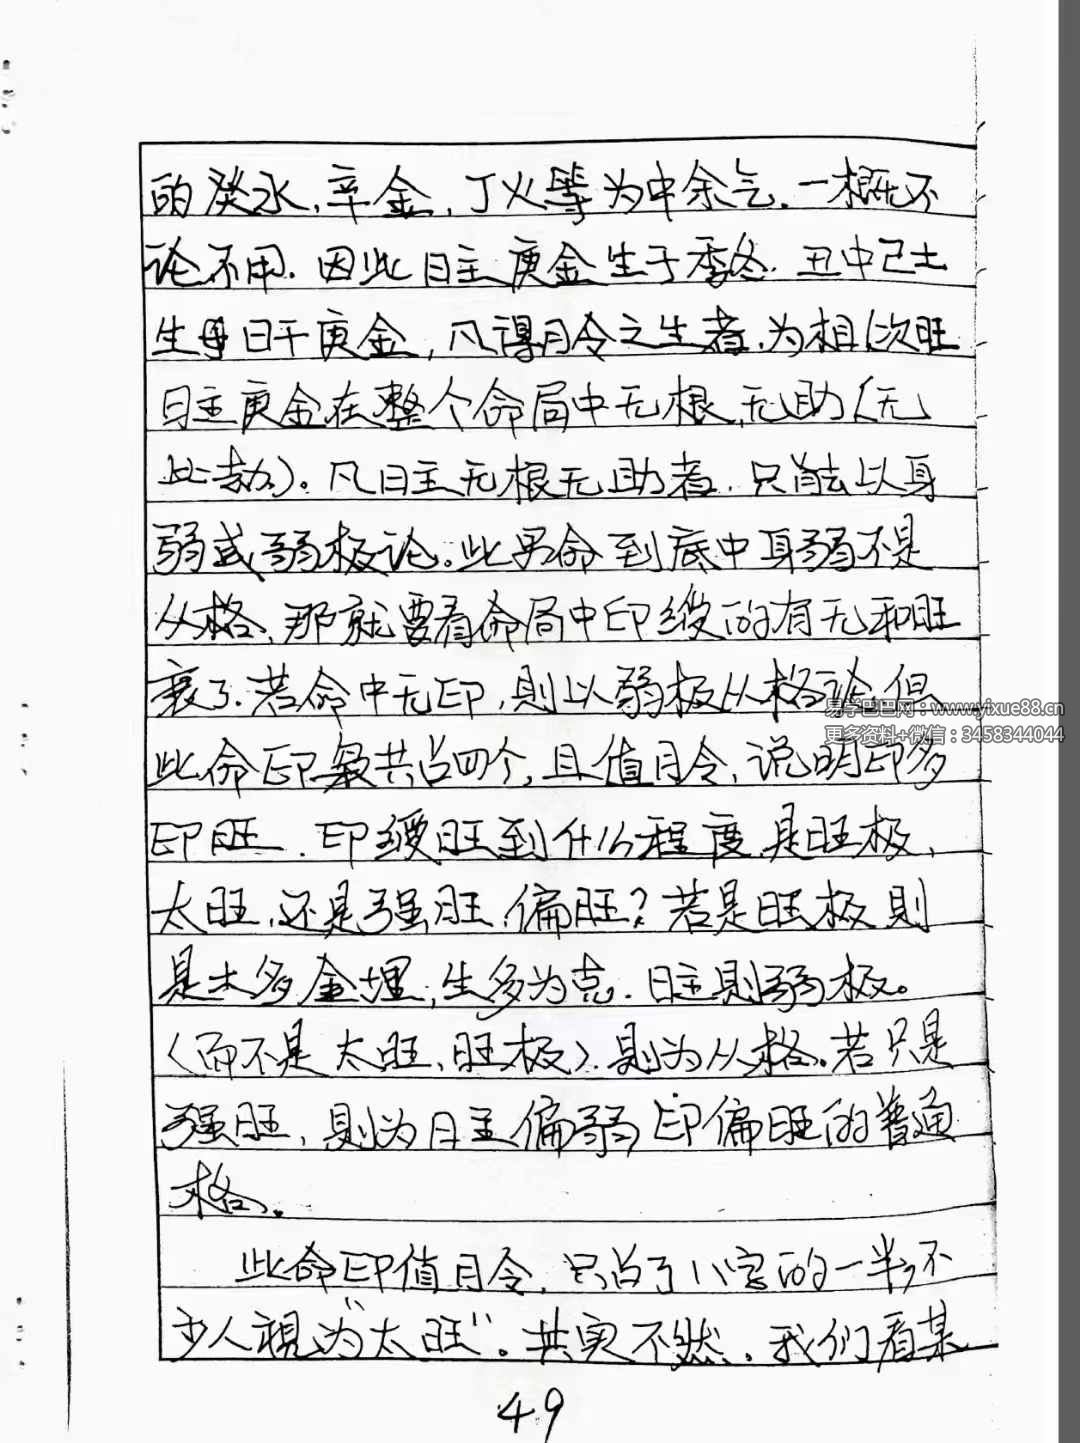 的癸水，辛金，丁火等为中余气．一概不
论不用．因此日主庚金生于季冬．丑中己土
生日干庚金，凡得月令之生者，为相（次旺
日主庚金在整个命局中无根，无助（无
比劫）。凡日主无根无助者．只能以身
弱或弱极论。此男命到底中身弱不是
从格，那就要看命局中印绶的有无和旺
衰了．若命中无印，则以弱极从格论，但
易学巴巴网：www.yixue88.cn
更多资料+微信：3458344044
此命印枭共占四个，且值月令，说明印多
印旺．印绶旺到什么程度，是旺极，
太旺，还是强旺，偏旺？若是旺极则
是土多金埋，生多为克．日主则弱极。
（而不是太旺，旺极），则为从格。若只是
强旺，则为日主偏弱，印偏旺的普通
格。
此命印值月令，只占了八字的一半，不
少人视为“太旺”。其实不然。我们看某
49